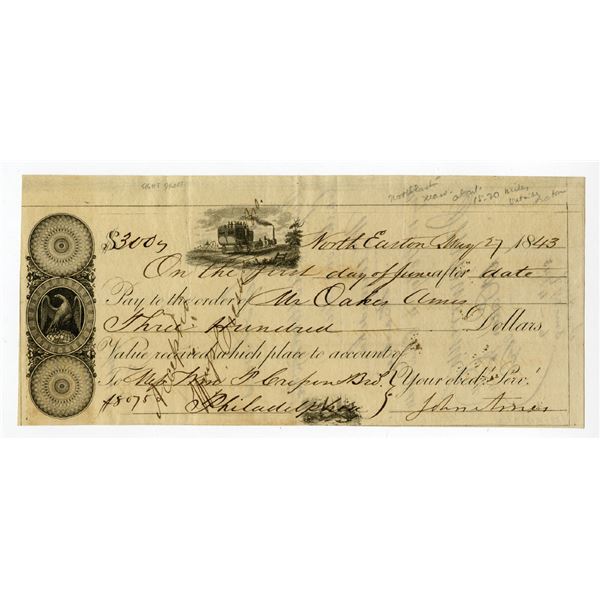 SIGHT DRAFT
North Easton
Mass. about
15-20 miles
outside
$300
North Easton May 27 1843
On the first day of June after date
Pay to the order of Mr Oakes Ames
Three Hundred Dollars
Value received which place to account of
To Mess Wm P Cresson & Bro. Your obedt. Servt.
Philadelphia
John Ames
Accepted